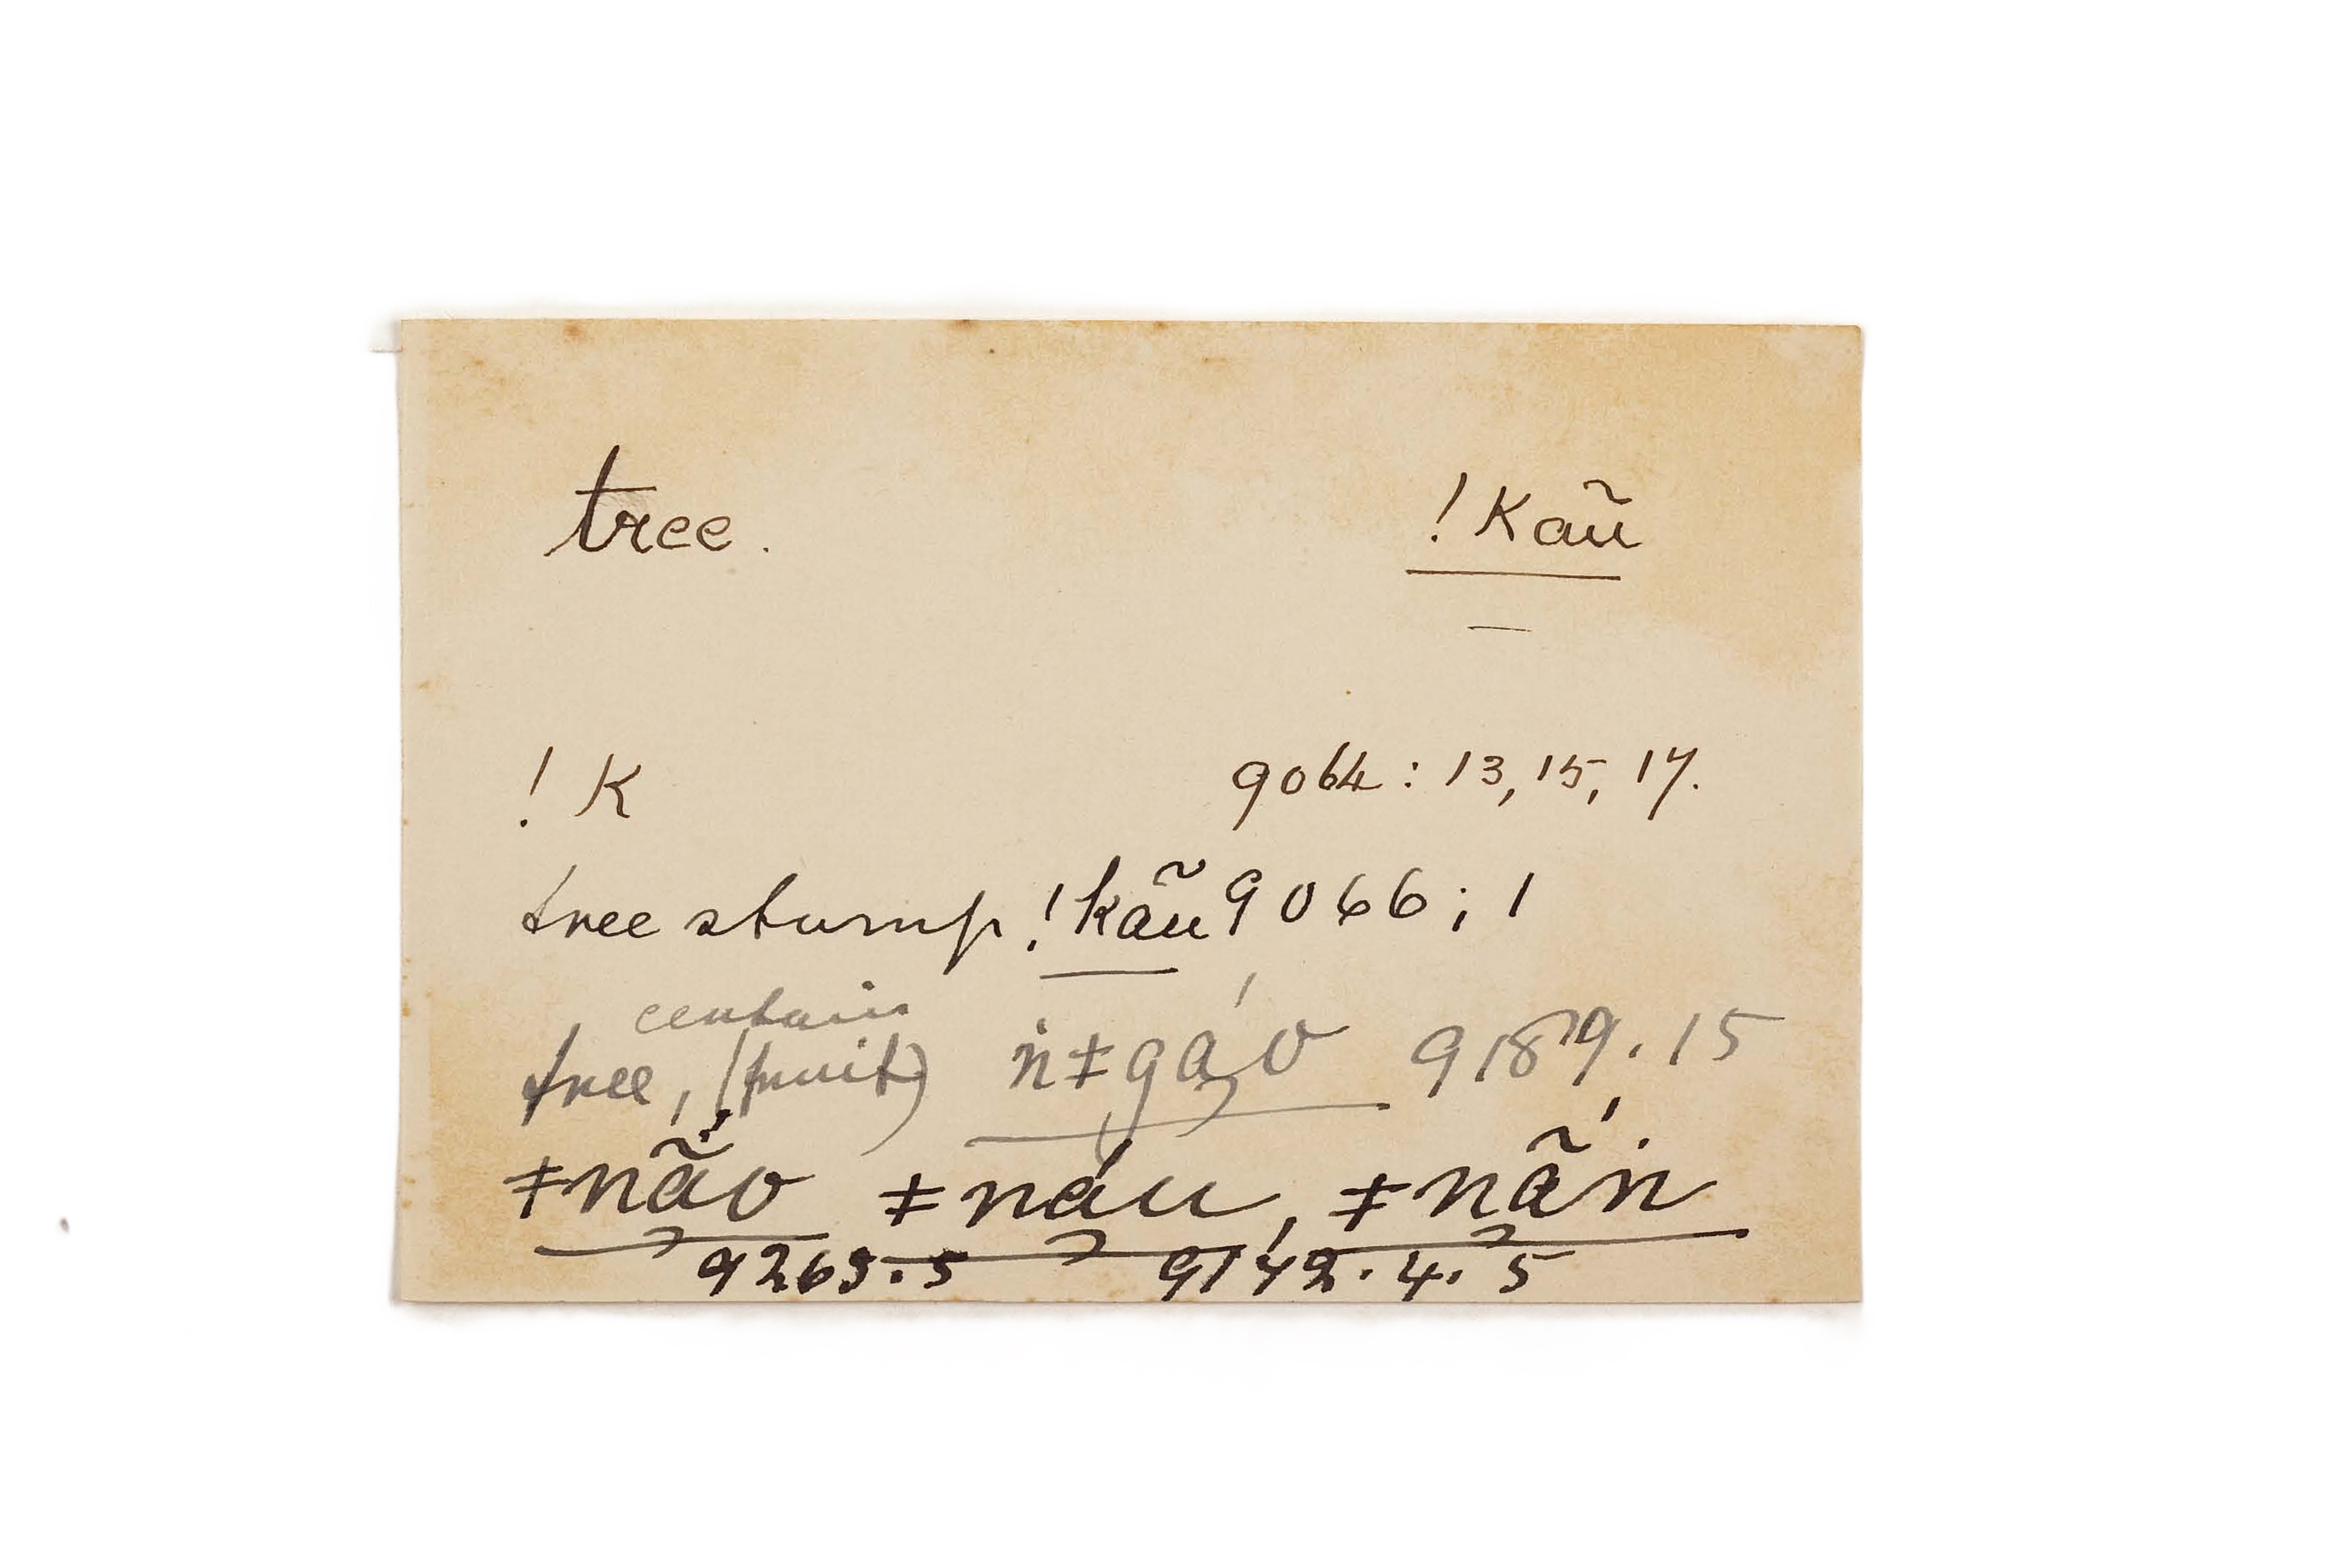 tree. !Kaũ
! K 9064 : 13, 15, 17.
tree stump !kãu 9066 ; 1
certain
tree, (fruit) ṅ‡gá̧o 9189.15
‡nã́o ‡náu, ‡nã́ṅ
9263.5 9142.4.5